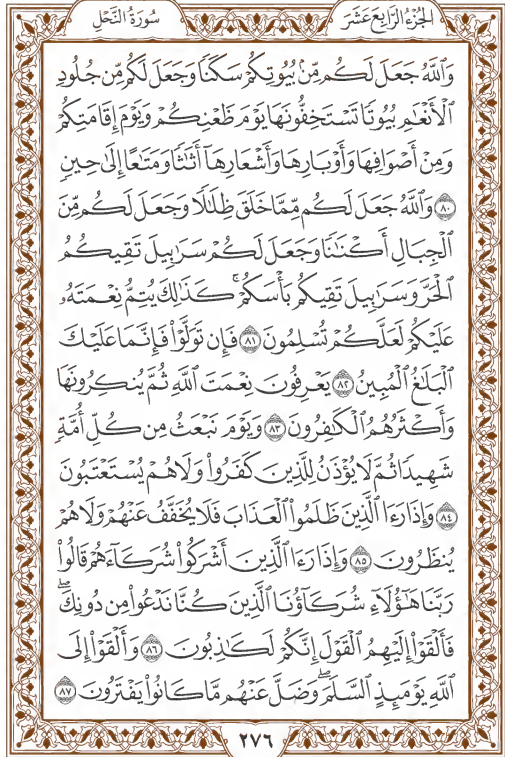 الجزء الرابع عشر
سورة النحل
وَاللَّهُ جَعَلَ لَكُم مِّنۢ بُيُوتِكُمْ سَكَنًا وَجَعَلَ لَكُم مِّن جُلُودِ
ٱلْأَنْعَٰمِ بُيُوتًا تَسْتَخِفُّونَهَا يَوْمَ ظَعْنِكُمْ وَيَوْمَ إِقَامَتِكُمْ
وَمِنْ أَصْوَافِهَا وَأَوْبَارِهَا وَأَشْعَارِهَآ أَثَٰثًا وَمَتَٰعًا إِلَىٰ حِينٍ
٨٠ وَٱللَّهُ جَعَلَ لَكُم مِّمَّا خَلَقَ ظِلَٰلًا وَجَعَلَ لَكُم مِّنَ
ٱلْجِبَالِ أَكْنَٰنًا وَجَعَلَ لَكُمْ سَرَٰبِيلَ تَقِيكُمُ
ٱلْحَرَّ وَسَرَٰبِيلَ تَقِيكُم بَأْسَكُمْ ۚ كَذَٰلِكَ يُتِمُّ نِعْمَتَهُۥ
عَلَيْكُمْ لَعَلَّكُمْ تُسْلِمُونَ ٨١ فَإِن تَوَلَّوْا۟ فَإِنَّمَا عَلَيْكَ
ٱلْبَلَٰغُ ٱلْمُبِينُ ٨٢ يَعْرِفُونَ نِعْمَتَ ٱللَّهِ ثُمَّ يُنكِرُونَهَا
وَأَكْثَرُهُمُ ٱلْكَٰفِرُونَ ٨٣ وَيَوْمَ نَبْعَثُ مِن كُلِّ أُمَّةٍ
شَهِيدًا ثُمَّ لَا يُؤْذَنُ لِلَّذِينَ كَفَرُوا۟ وَلَا هُمْ يُسْتَعْتَبُونَ
٨٤ وَإِذَا رَءَا ٱلَّذِينَ ظَلَمُوا۟ ٱلْعَذَابَ فَلَا يُخَفَّفُ عَنْهُمْ وَلَا هُمْ
يُنظَرُونَ ٨٥ وَإِذَا رَءَا ٱلَّذِينَ أَشْرَكُوا۟ شُرَكَآءَهُمْ قَالُوا۟
رَبَّنَا هَٰٓؤُلَآءِ شُرَكَآؤُنَا ٱلَّذِينَ كُنَّا نَدْعُوا۟ مِن دُونِكَ ۖ
فَأَلْقَوْا۟ إِلَيْهِمُ ٱلْقَوْلَ إِنَّكُمْ لَكَٰذِبُونَ ٨٦ وَأَلْقَوْا۟ إِلَى
ٱللَّهِ يَوْمَئِذٍ ٱلسَّلَمَ ۖ وَضَلَّ عَنْهُم مَّا كَانُوا۟ يَفْتَرُونَ ٨٧
٢٧٦